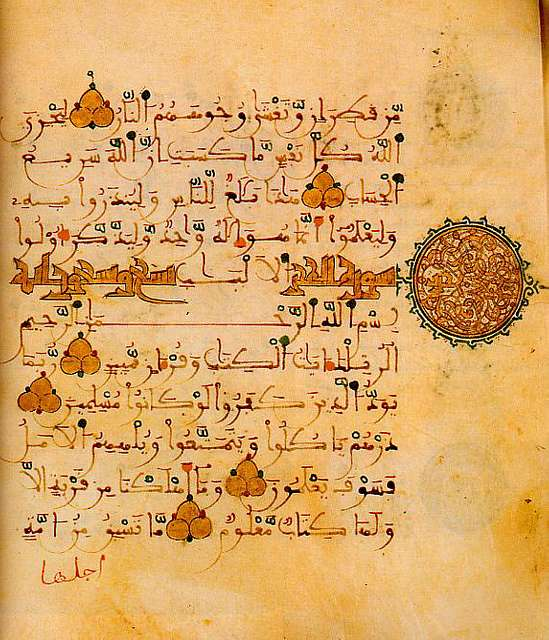 مِّن قَطِرَانٍ وَّتَغْشَىٰ وُجُوهَهُمُ النَّارُ لِيَجْزِيَ
اللَّهُ كُلَّ نَفْسٍ مَّا كَسَبَتْ إِنَّ اللَّهَ سَرِيعُ
الْحِسَابِ هَٰذَا بَلَٰغٌ لِّلنَّاسِ وَلِيُنذَرُوا بِهِ
وَلِيَعْلَمُوا أَنَّمَا هُوَ إِلَٰهٌ وَّاحِدٌ وَّلِيَذَّكَّرَ أُوْلُوا
سورة الحجر الْأَلْبَٰبِ تسع وتسعون اية
بِسْمِ اللَّهِ الرَّحْمَٰنِ الرَّحِيمِ
الر تِلْكَ ءَايَٰتُ الْكِتَٰبِ وَقُرْءَانٍ مُّبِينٍ رُّبَمَا
يَوَدُّ الَّذِينَ كَفَرُوا لَوْ كَانُوا مُسْلِمِينَ
ذَرْهُمْ يَاكُلُوا وَيَتَمَتَّعُوا وَيُلْهِهِمُ الْأَمَلُ
فَسَوْفَ يَعْلَمُونَ وَمَا أَهْلَكْنَا مِن قَرْيَةٍ إِلَّا
وَلَهَا كِتَابٌ مَّعْلُومٌ مَّا تَسْبِقُ مِنْ أُمَّةٍ
اجلها